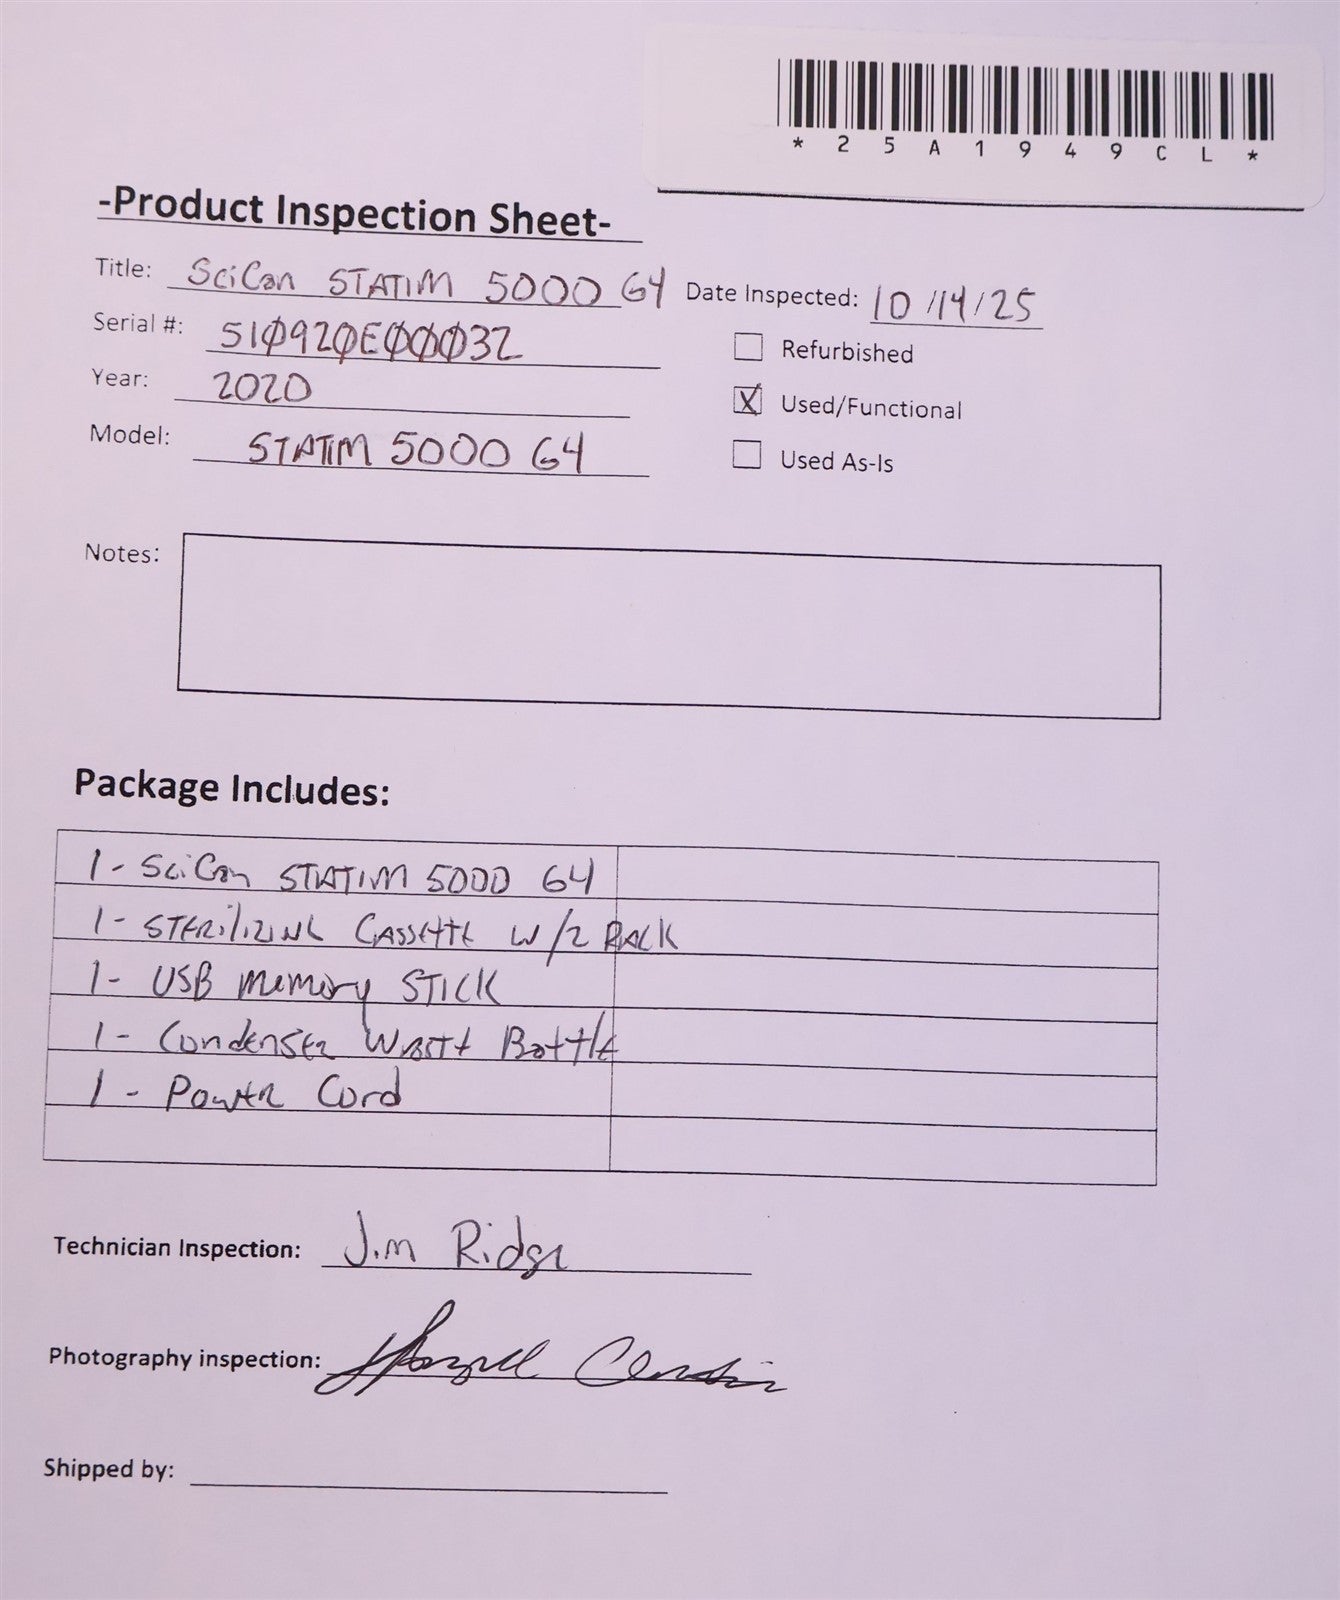 *25A1949CL*
-Product Inspection Sheet-
Title: SciCan STATIM 5000 G4 Date Inspected: 10/14/25
Serial #: 510920E00032
Refurbished
Year: 2020
X Used/Functional
Model: STATIM 5000 G4
Used As-Is
Notes:
Package Includes:
1 - SciCan STATIM 5000 G4
1 - STERilizing CASSette w/2 RACK
1 - USB memory STICK
1 - Condenser Waste Bottle
1 - Power Cord
Technician Inspection: Jim Ridge
Photography inspection:
Shipped by: